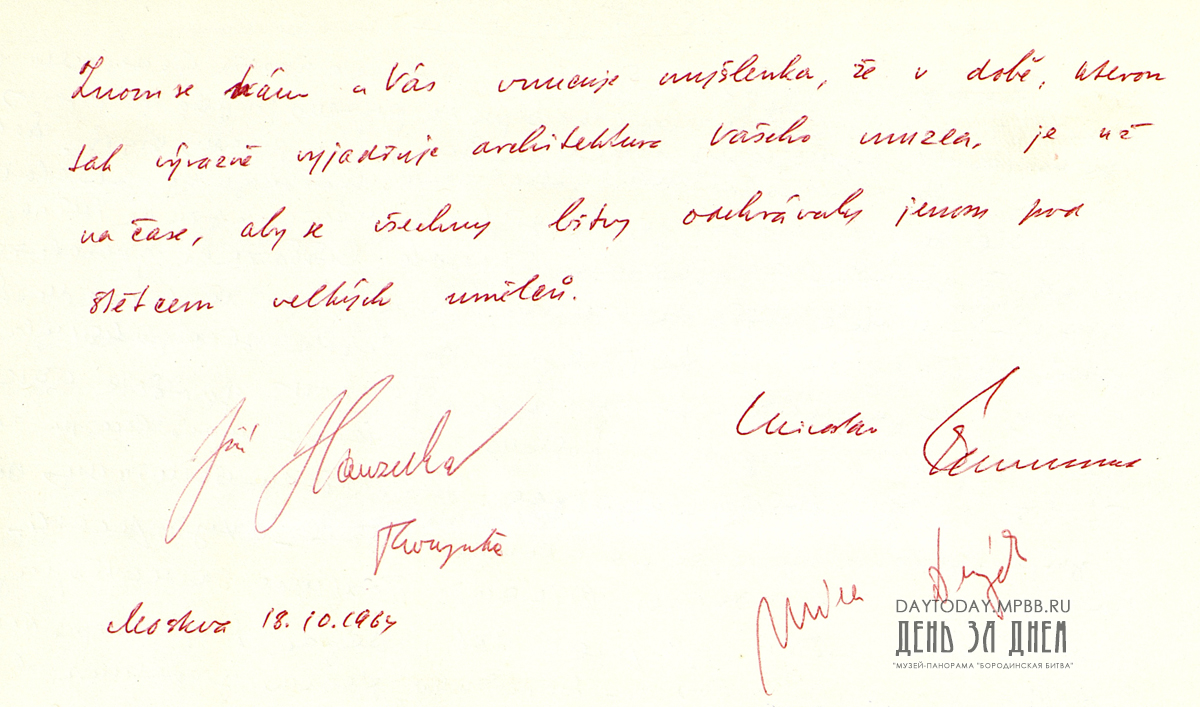 Znovu se nám u Vás vnucuje myšlenka, že v době, kterou
tak výrazně vyjadřuje architektura Vašeho muzea, je už
na čase, aby se všechny bitvy odehrávaly jenom pod
štětcem velkých umělců.
Jiří Hanzelka
Miroslav
Moskva 18.10.1964
DAYTODAY.MPBB.RU
ДЕНЬ ЗА ДНЕМ
"МУЗЕЙ-ПАНОРАМА "БОРОДИНСКАЯ БИТВА"